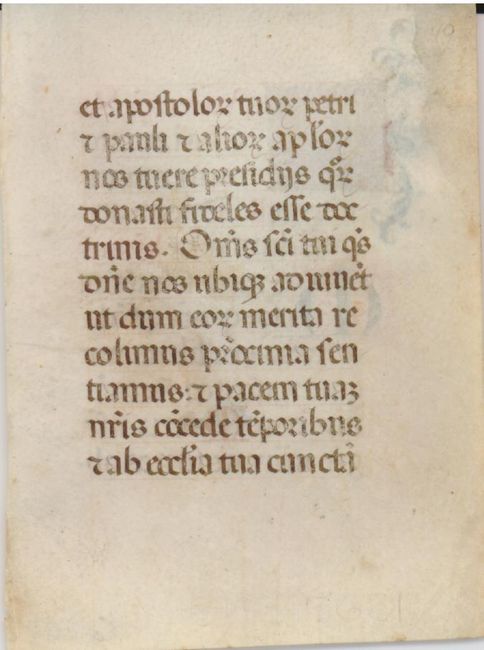 et apostoloꝝ tuoꝝ petri
⁊ pauli ⁊ alioꝝ apl̃oꝝ
nos tuere presidijs qꝛ̃
donasti fideles esse doc
trinis. Om̃s sc̃i tui q̃s
dñe nos ubiqꝫ adiuuẽt
ut dum eoꝝ merita re
colimus ꝓxima sen
tiamus: ⁊ pacem tuaꝫ
nr̃is cõcede tẽporibus
⁊ ab eccl̃ia tua cunctã